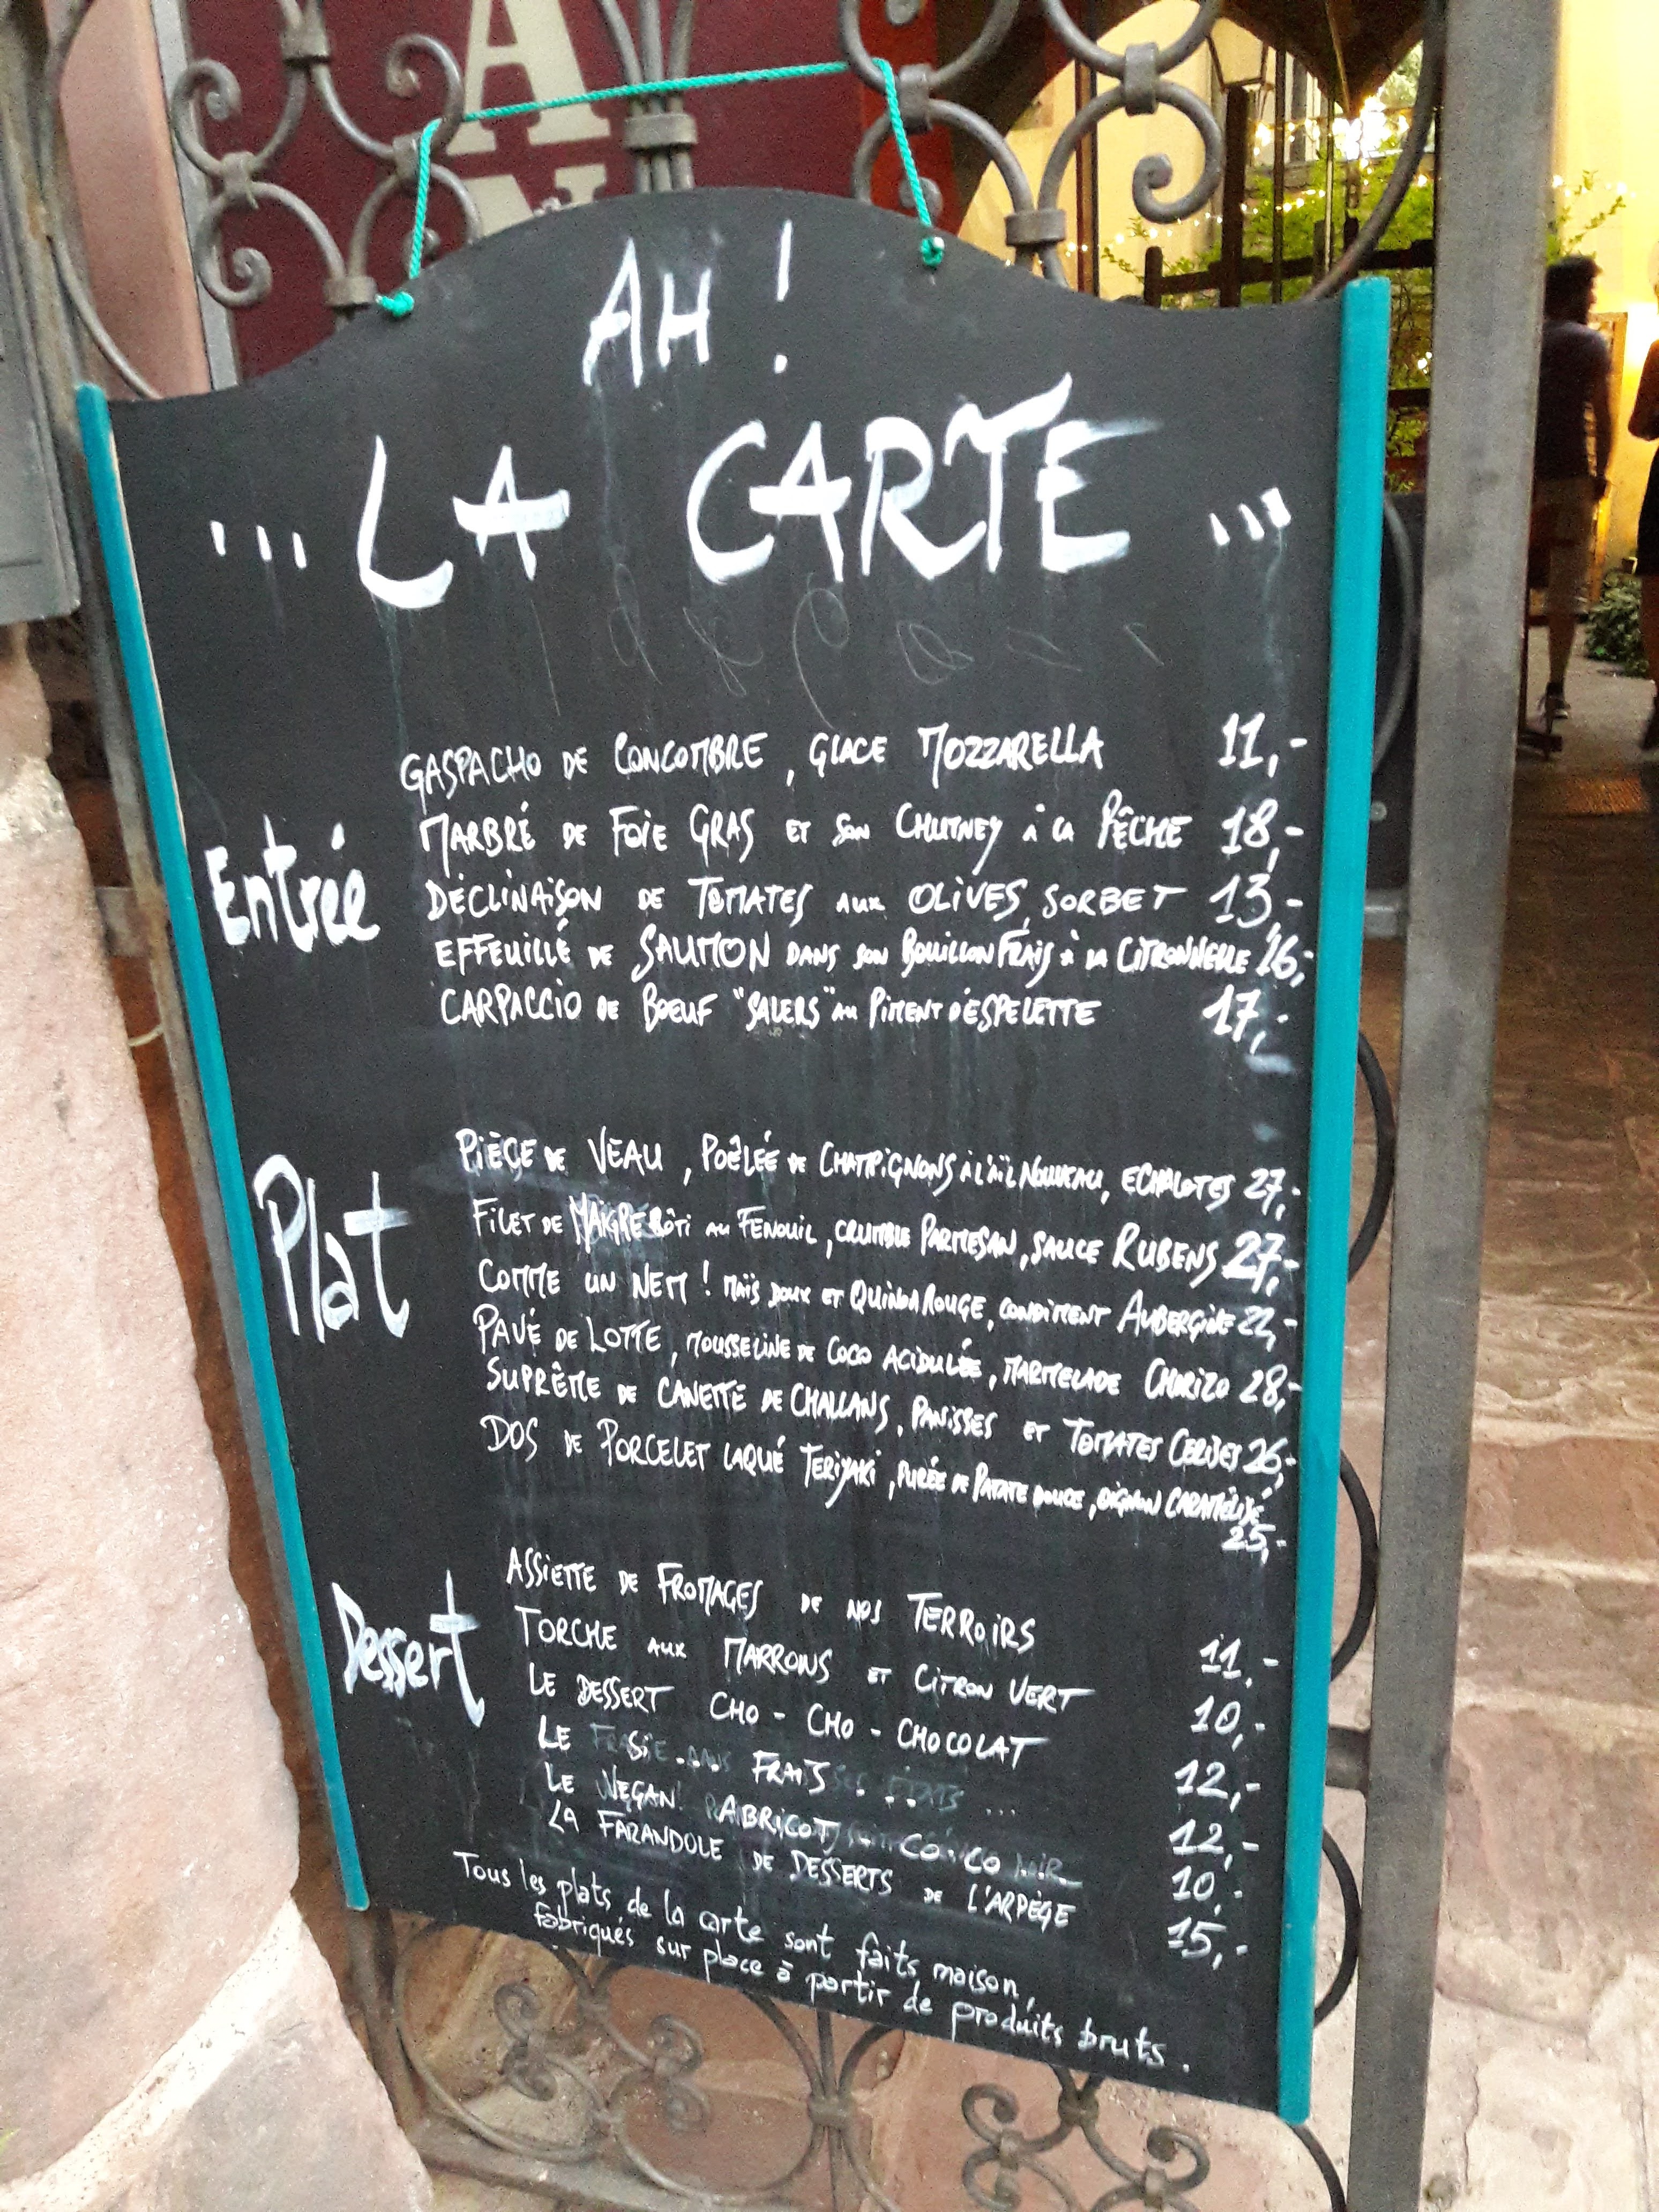 AN
AH !
... LA CARTE ...
Entrée
GASPACHO DE CONCOMBRE, GLACE MOZZARELLA 11,-
MARBRÉ DE FOIE GRAS ET SON CHUTNEY À LA PÊCHE 18,-
DÉCLINAISON DE TOMATES AUX OLIVES, SORBET 13,-
EFFEUILLÉ DE SAUMON DANS SON BOUILLON FRAIS À LA CITRONNELLE 16,-
CARPACCIO DE BOEUF "SALERS" AU PIMENT D'ESPELETTE 17,-
Plat
PIÈCE DE VEAU, POÊLÉE DE CHAMPIGNONS À L'AÏL NOUVEAU, ECHALOTES 27,-
FILET DE MAIGRE RÔTI AU FENOUIL, CRUMBLE PARMESAN, SAUCE RUBENS 27,-
COMME UN NEM ! MAÏS DOUX ET QUINOA ROUGE, CONDIMENT AUBERGINE 22,-
PAVÉ DE LOTTE, MOUSSELINE DE COCO ACIDULÉE, MARMELADE CHORIZO 28,-
SUPRÊME DE CANETTE DE CHALLANS, PANISSES ET TOMATES CERISES 26,-
DOS DE PORCELET LAQUÉ TERIYAKI, PURÉE DE PATATE DOUCE, OIGNON CARAMÉLISÉ
25,-
Dessert
ASSIETTE DE FROMAGES DE NOS TERROIRS 11,-
TORCHE AUX MARRONS ET CITRON VERT 10,-
LE DESSERT CHO - CHO - CHOCOLAT 12,-
LE SI... FRAIS... 12,-
LE VEGAN ABRICOT - CO-CO 10,-
LA FARANDOLE DE DESSERTS DE L'ARPÈGE 15,-
Tous les plats de la carte sont faits maison,
fabriqués sur place à partir de produits bruts.